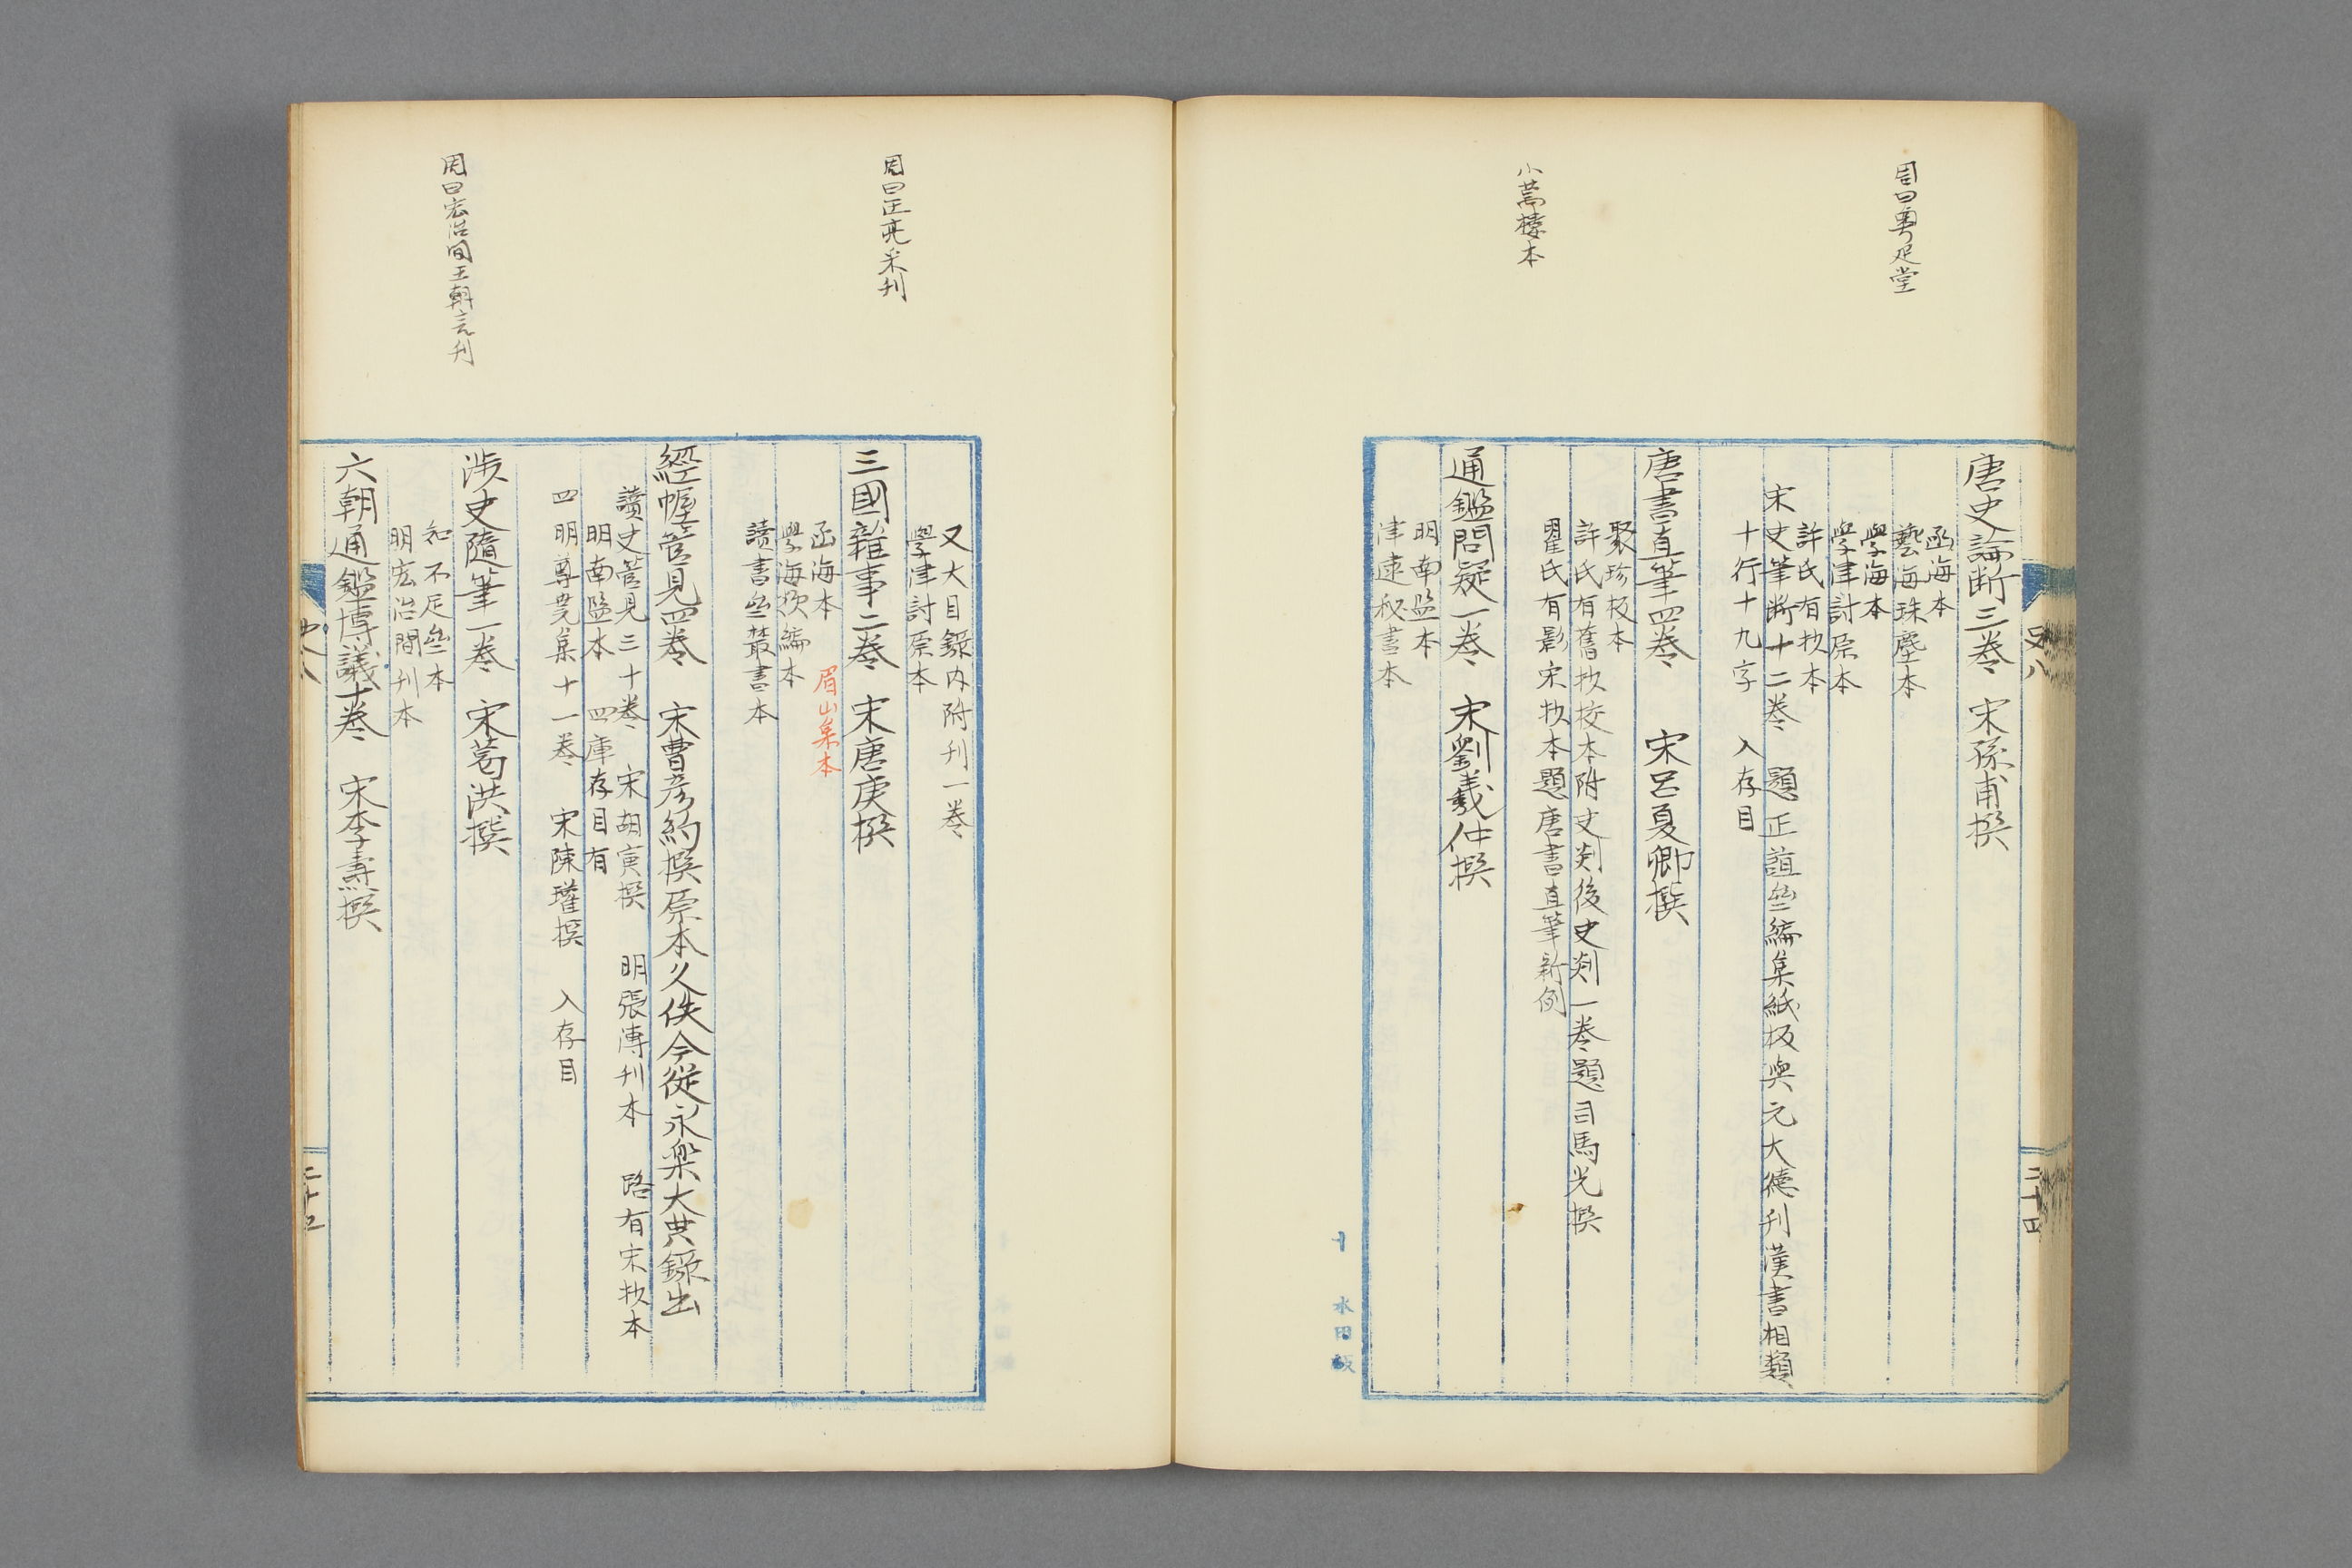 周曰粵足堂
小萬樓本
史八
二十四
唐史論断三卷　宋孫甫撰
函海本
藝海珠塵本
學海本
學津討原本
許氏有抄本
宋史筆断十二卷　題正誼叅編集紙板與元大德刊漢書相類
十行十九字　入存目
唐書直筆四卷　宋呂夏卿撰
聚珍板本
許氏有舊抄校本附史剡後史剡一卷題司馬光撰
瞿氏有影宋抄本題唐書直筆新例
通鑑問疑一卷　宋劉羲仲撰
明南監本
津逮秘書本
周曰汪亮采刊
周曰宏治間王朝言刊
又大目錄內附刊一卷
學津討原本
三國雜事二卷　宋唐庚撰
函海本
眉山集本
學海類編本
讀書叅叢書本
經幄管見四卷　宋曹彥約撰原本久佚今從永樂大典錄出
讀史管見三十卷　宋胡寅撰　明張溥刊本　路有宋抄本
明南監本　四庫存目有
四明尊堯集十一卷　宋陳瓘撰　入存目
涉史隨筆一卷　宋葛洪撰
知不足叅本
明宏治間刊本
六朝通鑑博議十卷　宋李燾撰